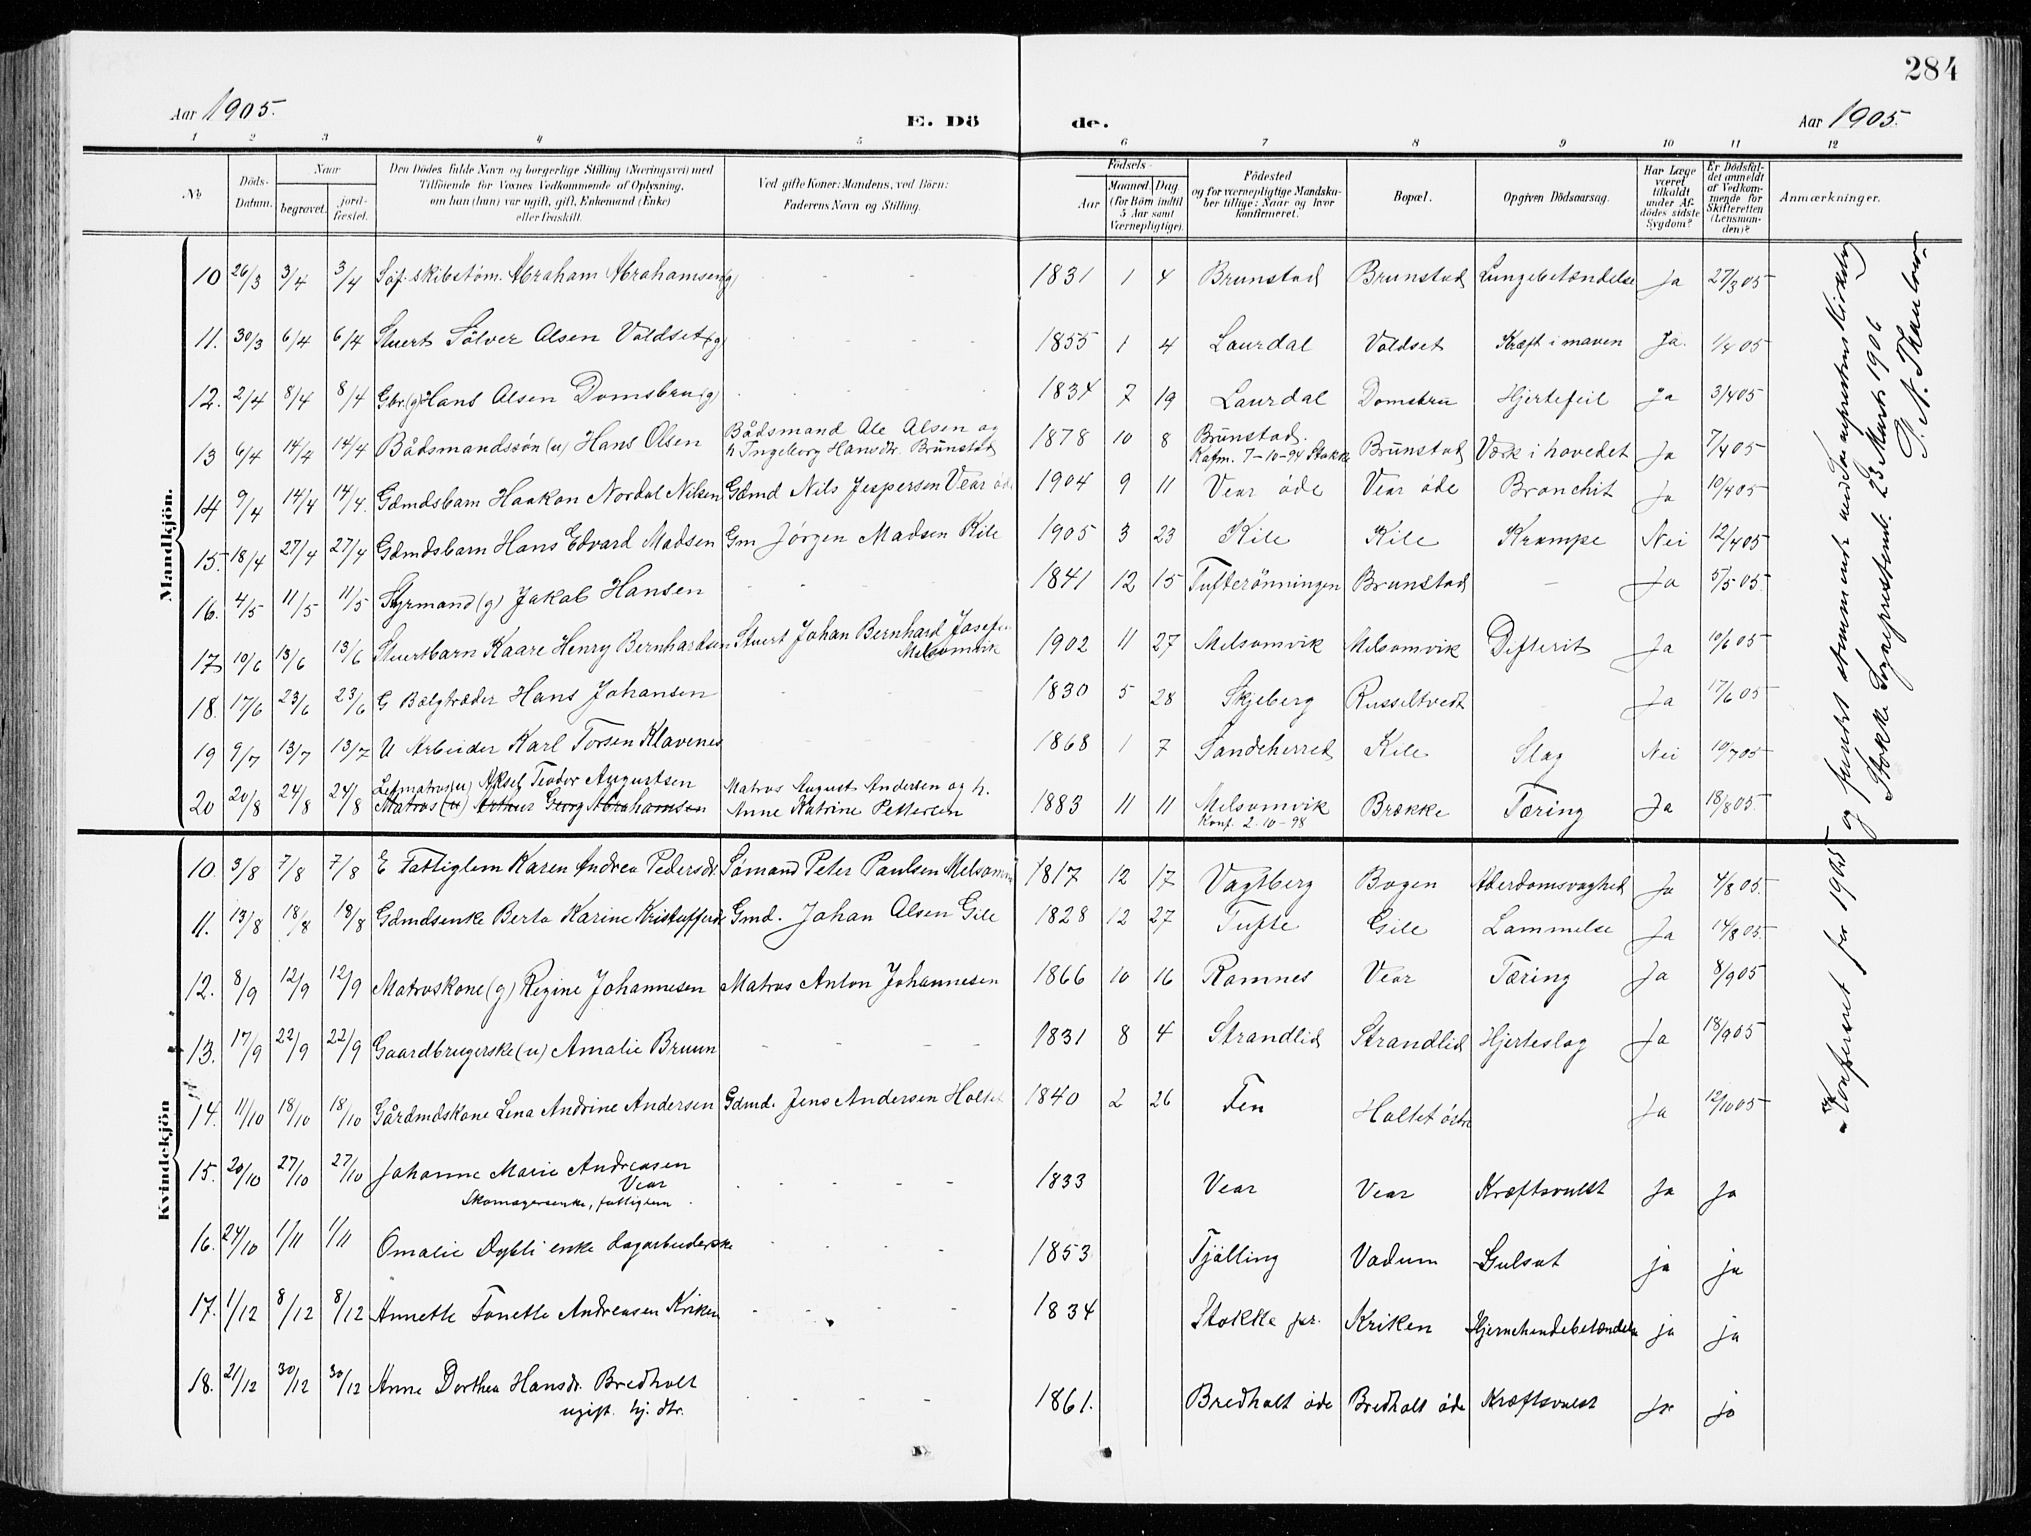 284
Aar 1905.
E. Dö de.
Aar 1905.
1 2 3 4 5 6 7 8 9 10 11 12
№ Döds-Datum. Naar begravet. jord-fæstet. Den Dödes fulde Navn og borgerlige Stilling (Næringsvei) med Tilföiende for Voxnes Vedkommende af Oplysning, om han (hun) var ugift, gift, Enkemand (Enke) eller fraskilt. Ved gifte Koner: Mandens, ved Börn: Faderens Navn og Stilling. Födsels- Aar Maaned. Dag (for Börn indtil 5 Aar samt Værnepligtige). Födested og for værnepligtige Mandskaber tillige: Naar og hvor konfirmeret. Bopæl. Opgiven Dödsaarsag. Har Læge været tilkaldt under Afdödes sidste Sygdom? Er Dödsfaldet anmeldt af Vedkommende for Skifteretten (Lensmanden)? Anmærkninger.
Mandkjön.
10 26/3 3/4 3/4 Söf. skibstøm. Abraham Abrahamsen (g) - - - 1831 1 4 Brunstad Brunstad Lungebetændelse Ja 27/3 05
11. 30/3 6/4 6/4 Stuert Sölver Olsen Voldset (g) - - - 1855 1 4 Laurdal Voldset Kræft i maven Ja. 1/4 05
12. 2/4 8/4 8/4 Gbr. (g) Hans Olsen Domsbru (g) - - - 1834 7 19 Laurdal Domsbru Hjertefeil Ja 3/4 05
13 6/4 14/4 14/4 Bådsmandssön (u) Hans Olsen Bådsmand Ole Olsen og h. Ingeborg Hansdtr. Brunstad 1878 10 8 Brunstad. Kofm. 7-10-94 Stokke Brunstad Værk i hovedet Ja 7/4 05
14 9/4 14/4 14/4. Gdmdsbarn Haakon Nordal Nilsen Gdmd Nils Jespersen Vear öde 1904 9 11 Vear öde Vear öde Bronchit Ja 10/4 05
15. 18/4 27/4 27/4 Gdmdsbarn Hans Edvard Madsen Gm Jörgen Madsen Kile 1905 3 23 Kile Kile Krampe Nei 12/4 05
16. 4/5 11/5 11/5 Styrmand (g) Jakob Hansen - - - 1841 12 15 Tufterönningen Brunstad - Ja 5/5 05
17 10/6 13/6 13/6 Stuertbarn Kaare Henry Bernhardsen Stuert Johan Bernhard Josefsen Melsomvik 1902 11 27 Melsomvik Melsomvik Difterit Ja 10/6 05
18. 17/6 23/6 23/6 G Bælgtræder Hans Johansen - - - 1830 5 28 Skjeberg Russeltvedt - Ja 17/6 05
19 9/7 13/7 13/7 U Arbeider Karl Torsen Klavenes - - - 1868 1 7 Sandeherred Kile Slag Nei 10/7 05
20 20/8 24/8 24/8 Letmatros (u) Aksel Teodor Augustsen Matros August Andersen og h. Anne Katrine Pettersen 1883 11 11 Melsomvik Konf. 2-10-98 Brække Tæring Ja 18/8 05.
Matros (u) Arthur Georg Abrahamsen
Kvindekjön
10. 3/8 7/8 7/8 E Fattiglem Karen Andrea Pedersdt. Sømand Peter Paulsen Melsomvi 1817 12 17 Vagtberg Bogen Alderdomsvaghed Ja 4/8 05.
11. 13/8 18/8 18/8 Gdmdsenke Berta Karine Kristoffersd Gmd. Johan Olsen Gile 1828 12 27 Tufte Gile Lammelse Ja 14/8 05.
12. 8/9 12/9 12/9 Matroskone (g) Regine Johannesen Matros Anton Johannesen 1866 10 16 Ramnes Vear Tæring Ja 8/9 05
13. 17/9 22/9 22/9 Gaardbrugerske (u) Amalie Bruun - - - 1831 8 4 Strandlid Strandlid Hjerteslag Ja 18/9 05
14. 11/10 18/10 18/10 Gårdmdskone Lena Andrine Andersen Gdmd. Jens Andersen Holtet 1840 2 26 Fen Holtet östre Ja 12/10 05
15. 20/10 27/10 27/10 Johanne Marie Andreasen Vear - - - 1833 Vear Vear Kræftsvulst Ja Ja
Skomagersenke, fattiglem
16. 24/10 1/11 1/11 Omalie Dybli enke dagarbeiderske - - - 1853 Tjölling Vadum Gulsot ja ja
17. 1/12 8/12 8/12 Annette Tonette Andreasen Kriken - - - 1834 Stokke pr. Kriken Hjernehindebetændelse ja ja
18. 21/12 30/12 30/12 Anne Dorthea Hansdr. Bredholt - - - 1861. Bredholt öde Bredholt öde Kræftsvulst ja ja
ugift. hj. dtr.
Konfereret for 1905 og fundet stemmende med Sogneprestens Kirkebog
Stokke Sogneprestemb. 23 Marts 1906
P. N. Thaulow